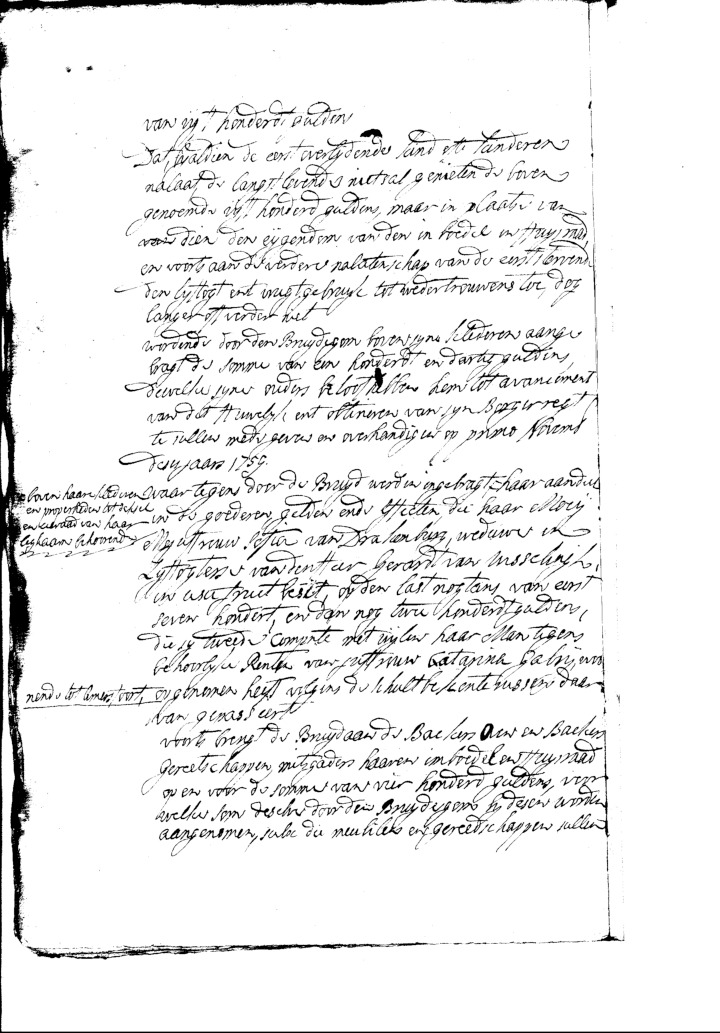 van vijft honderdt guldens
Dat, waldien de eerst overlijdende kind ofte kinderen
nalaat, de langstlevende niet sal genieten de boven
genoemde vijft honderd guldens, maar in plaatse van
van dien den eijgendom van den inboedel en Huysraad,
en voorts aan de verdere nalatenschap van de eerststervende
den lijftogt ent vrugtgebruijk tot wedertrouwens toe, dog
langer oft verder niet
wordende door den Bruijdegom boven syne klederen aange
bragt de somme van een honderdt en dartig guldens,
dewelke syne ouders belooft hebben hem tot avancement
van dit Huwelijk ent obtineren van syn Borgerregt
te sullen mede geven en overhandigen op primo Novemb
deses jaars 1759.
boven haare klederen
en properheden tot çieraad
en cieraad van haar
lighaam behorend
waar tegens door de Bruijd werden ingebragt haar aandeel
in de goederen, gelden ende effecten die haar Moeij
Mejuffrouw van Drakenburg, weduwe in
Lijftogterse van den Heer Gerardt van Wisselingh,
in usufruct besit, op den last nogtans van eerst
seven hondert, en dan nog twee honderdt guldens,
die sij tweede Comparante met wijlen haar Man tegens
behoorlijke Rente van juffrouw Catarina
nende tot Amersfoort, opgenomen heeft volgens de schultbekentenissen daar
van gepasseert
voorts brengt de Bruijd aan de Backers Oven en Backers
gereetschappen, mitsgaders haaren imboedel en Huijsraad
op en voor de somme van vier honderd guldens, voor
welke som deselve door den Bruijdegom bij desen worden
aangenomen, sulx die meubilen en gereedschappen sullen